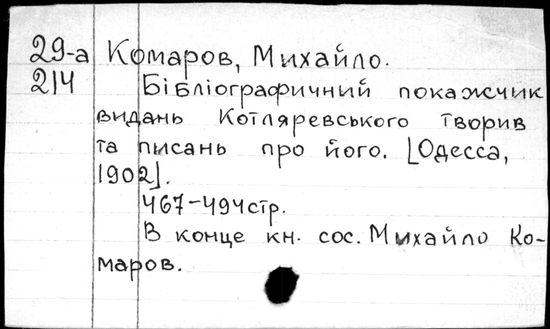 29-а Комаров, Михайло.
214 Бібліографичний покажчик
видань Котляревського творив
та писань про його. [Одесса,
1902].
467-494стр.
В конце кн. сос. Михайло Ко-
маров.